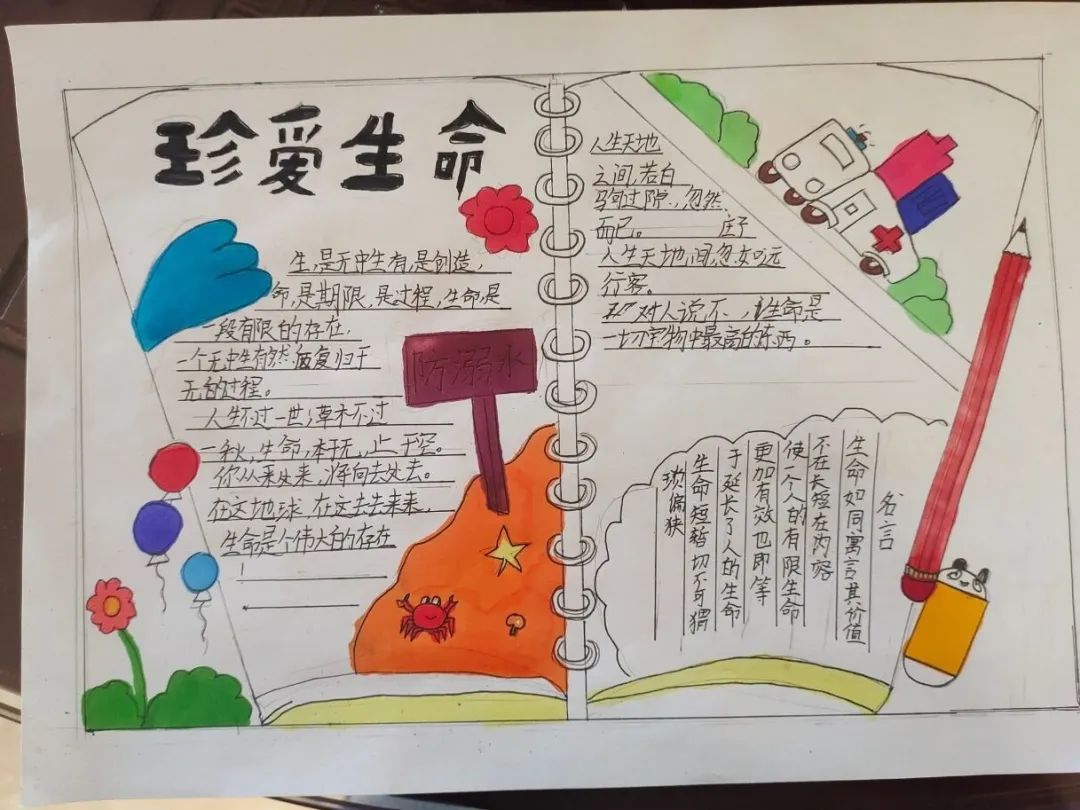 珍爱生命
生,是无中生有,是创造,
命,是期限,是过程,生命,是
一段有限的存在,
一个无中生有然后复归于
无的过程。
人生不过一世,草木不过
一秋,生命,本于无,止于空。
你从来处来,将向去处去。
在这地球,在这去去来来,
生命是个伟大的存在
!
防溺水
人生天地
之间,若白
驹过隙,忽然
而已。 庄子
人生天地间,忽如远
行客。
对人说不,生命是
一切宝物中最高的东西。
名言
生命如同寓言其价值
不在长短在内容
使一个人的有限生命
更加有效也即等
于延长了人的生命
生命短暂切不可猥
琐偏狭